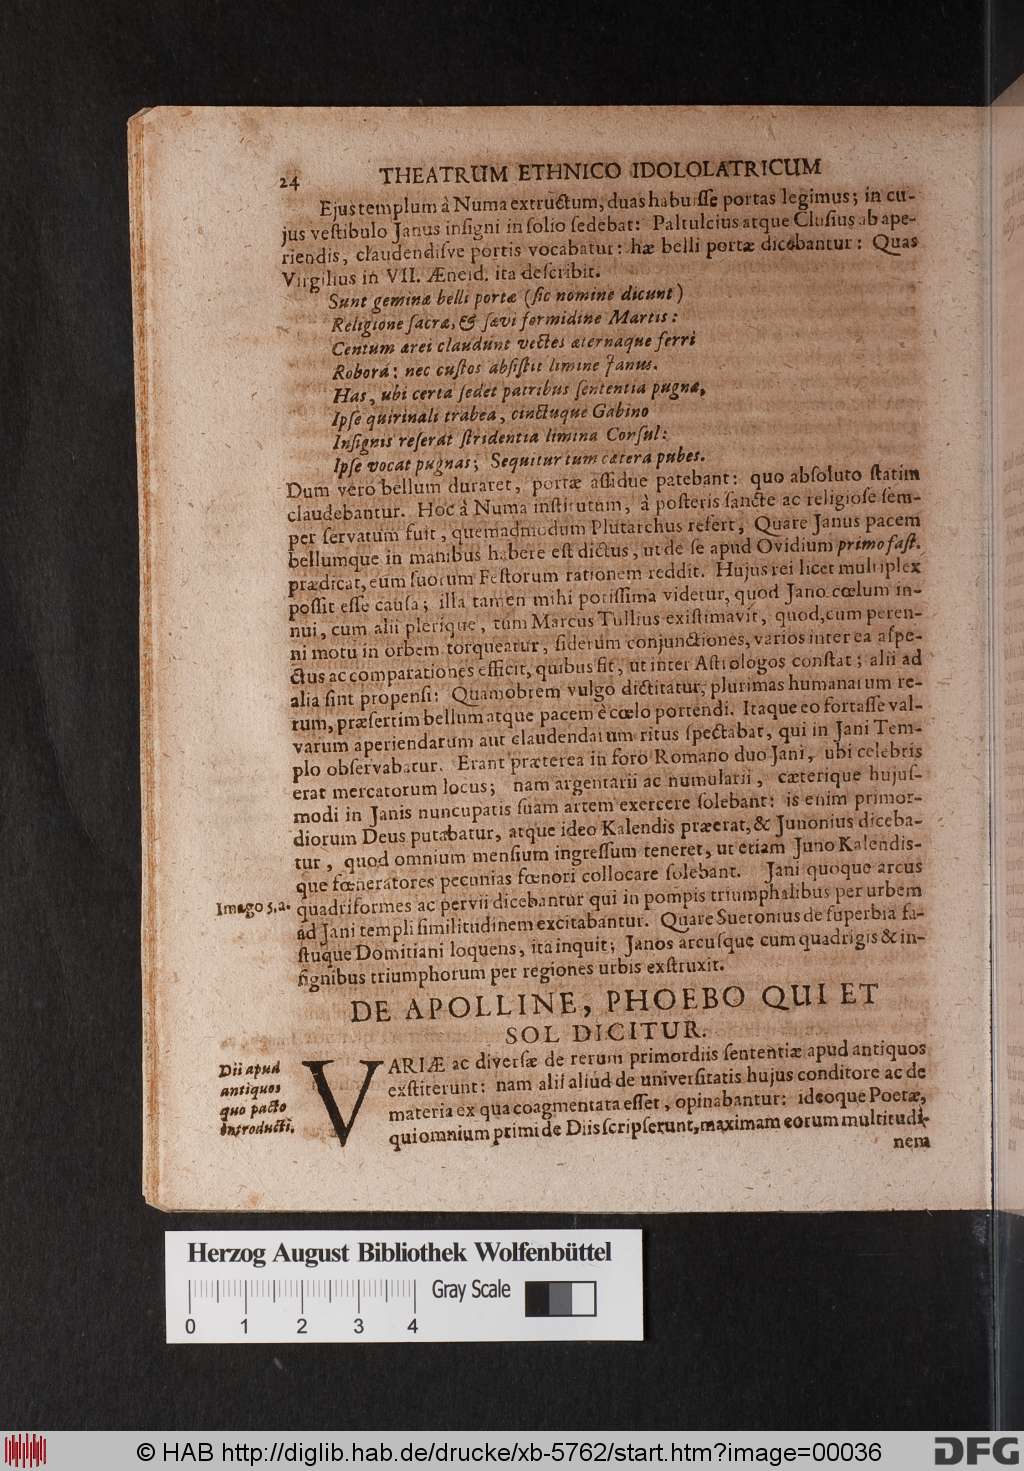 24 THEATRUM ETHNICO IDOLOLATRICUM
Ejus templum à Numa extructum, duas habuiſſe portas legimus; in cu-
jus veſtibulo Janus inſigni in ſolio ſedebat: Paltulcius atque Cluſius ab ape-
riendis, claudendiſve portis vocabatur: hæ belli portæ dicebantur: Quas
Virgilius in VII. Æneid. ita deſcribit.
Sunt geminæ belli portæ (ſic nomine dicunt)
Religione ſacræ, & ſævi formidine Martis:
Centum ærei claudunt vectes æternaque ferri
Robora: nec cuſtos abſiſtit limine Janus.
Has, ubi certa ſedet patribus ſententia pugnæ,
Ipſe quirinali trabea, cinctuque Gabino
Inſignis reſerat ſtridentia limina Corſul:
Ipſe vocat pugnas; Sequitur tum cætera pubes.
Dum vero bellum duraret, portæ aſſidue patebant: quo abſoluto ſtatim
claudebantur. Hoc à Numa inſtitutum, à poſteris ſancte ac religioſe ſem-
per ſervatum fuit, quemadmodum Plutarchus refert, Quare Janus pacem
bellumque in manibus habere eſt dictus, ut de ſe apud Ovidium primo faſt.
prædicat, eum ſuorum Feſtorum rationem reddit. Hujus rei licet multiplex
poſſit eſſe cauſa; illa tamen mihi potiſſima videtur, quod Jano cœlum in-
nui, cum alii plerique, tum Marcus Tullius exiſtimavit, quod, cum peren-
ni motu in orbem torqueatur, ſiderum conjunctiones, varios inter ea aſpe-
ctus ac comparationes efficit, quibus fit, ut inter Aſtrologos conſtat; alii ad
alia ſint propenſi: Quamobrem vulgo dictitatur, plurimas humanarum re-
rum, præſertim bellum atque pacem è cœlo portendi. Itaque eo fortaſſe val-
varum aperiendarum aut claudendarum ritus ſpectabat, qui in Jani Tem-
plo obſervabatur. Erant præterea in foro Romano duo Jani, ubi celebris
erat mercatorum locus; nam argentarii ac numularii, cæterique hujuſ-
modi in Janis nuncupatis ſuam artem exercere ſolebant: is enim primor-
diorum Deus putabatur, atque ideo Kalendis præerat, & Junonius diceba-
tur, quod omnium menſium ingreſſum teneret, ut etiam Juno Kalendis-
que fœneratores pecunias fœnori collocare ſolebant. Jani quoque arcus
Imago 5. a. quadriformes ac pervii dicebantur qui in pompis triumphalibus per urbem
ad Jani templi ſimilitudinem excitabantur. Quare Suetonius de ſuperbia fa-
ſtuque Domitiani loquens, ita inquit; Janos arcuſque cum quadrigis & in-
ſignibus triumphorum per regiones urbis exſtruxit.
DE APOLLINE, PHOEBO QUI ET
SOL DICITUR.
Dii apud
antiquos
quo pacto
introducti.
VARIÆ ac diverſæ de rerum primordiis ſententiæ apud antiquos
exſtiterunt: nam alii aliud de univerſitatis hujus conditore ac de
materia ex qua coagmentata eſſet, opinabantur: ideoque Poetæ,
qui omnium primi de Diis ſcripſerunt, maximam eorum multitudi-
nem
Herzog August Bibliothek Wolfenbüttel
Gray Scale
0 1 2 3 4
© HAB http://diglib.hab.de/drucke/xb-5762/start.htm?image=00036
DFG